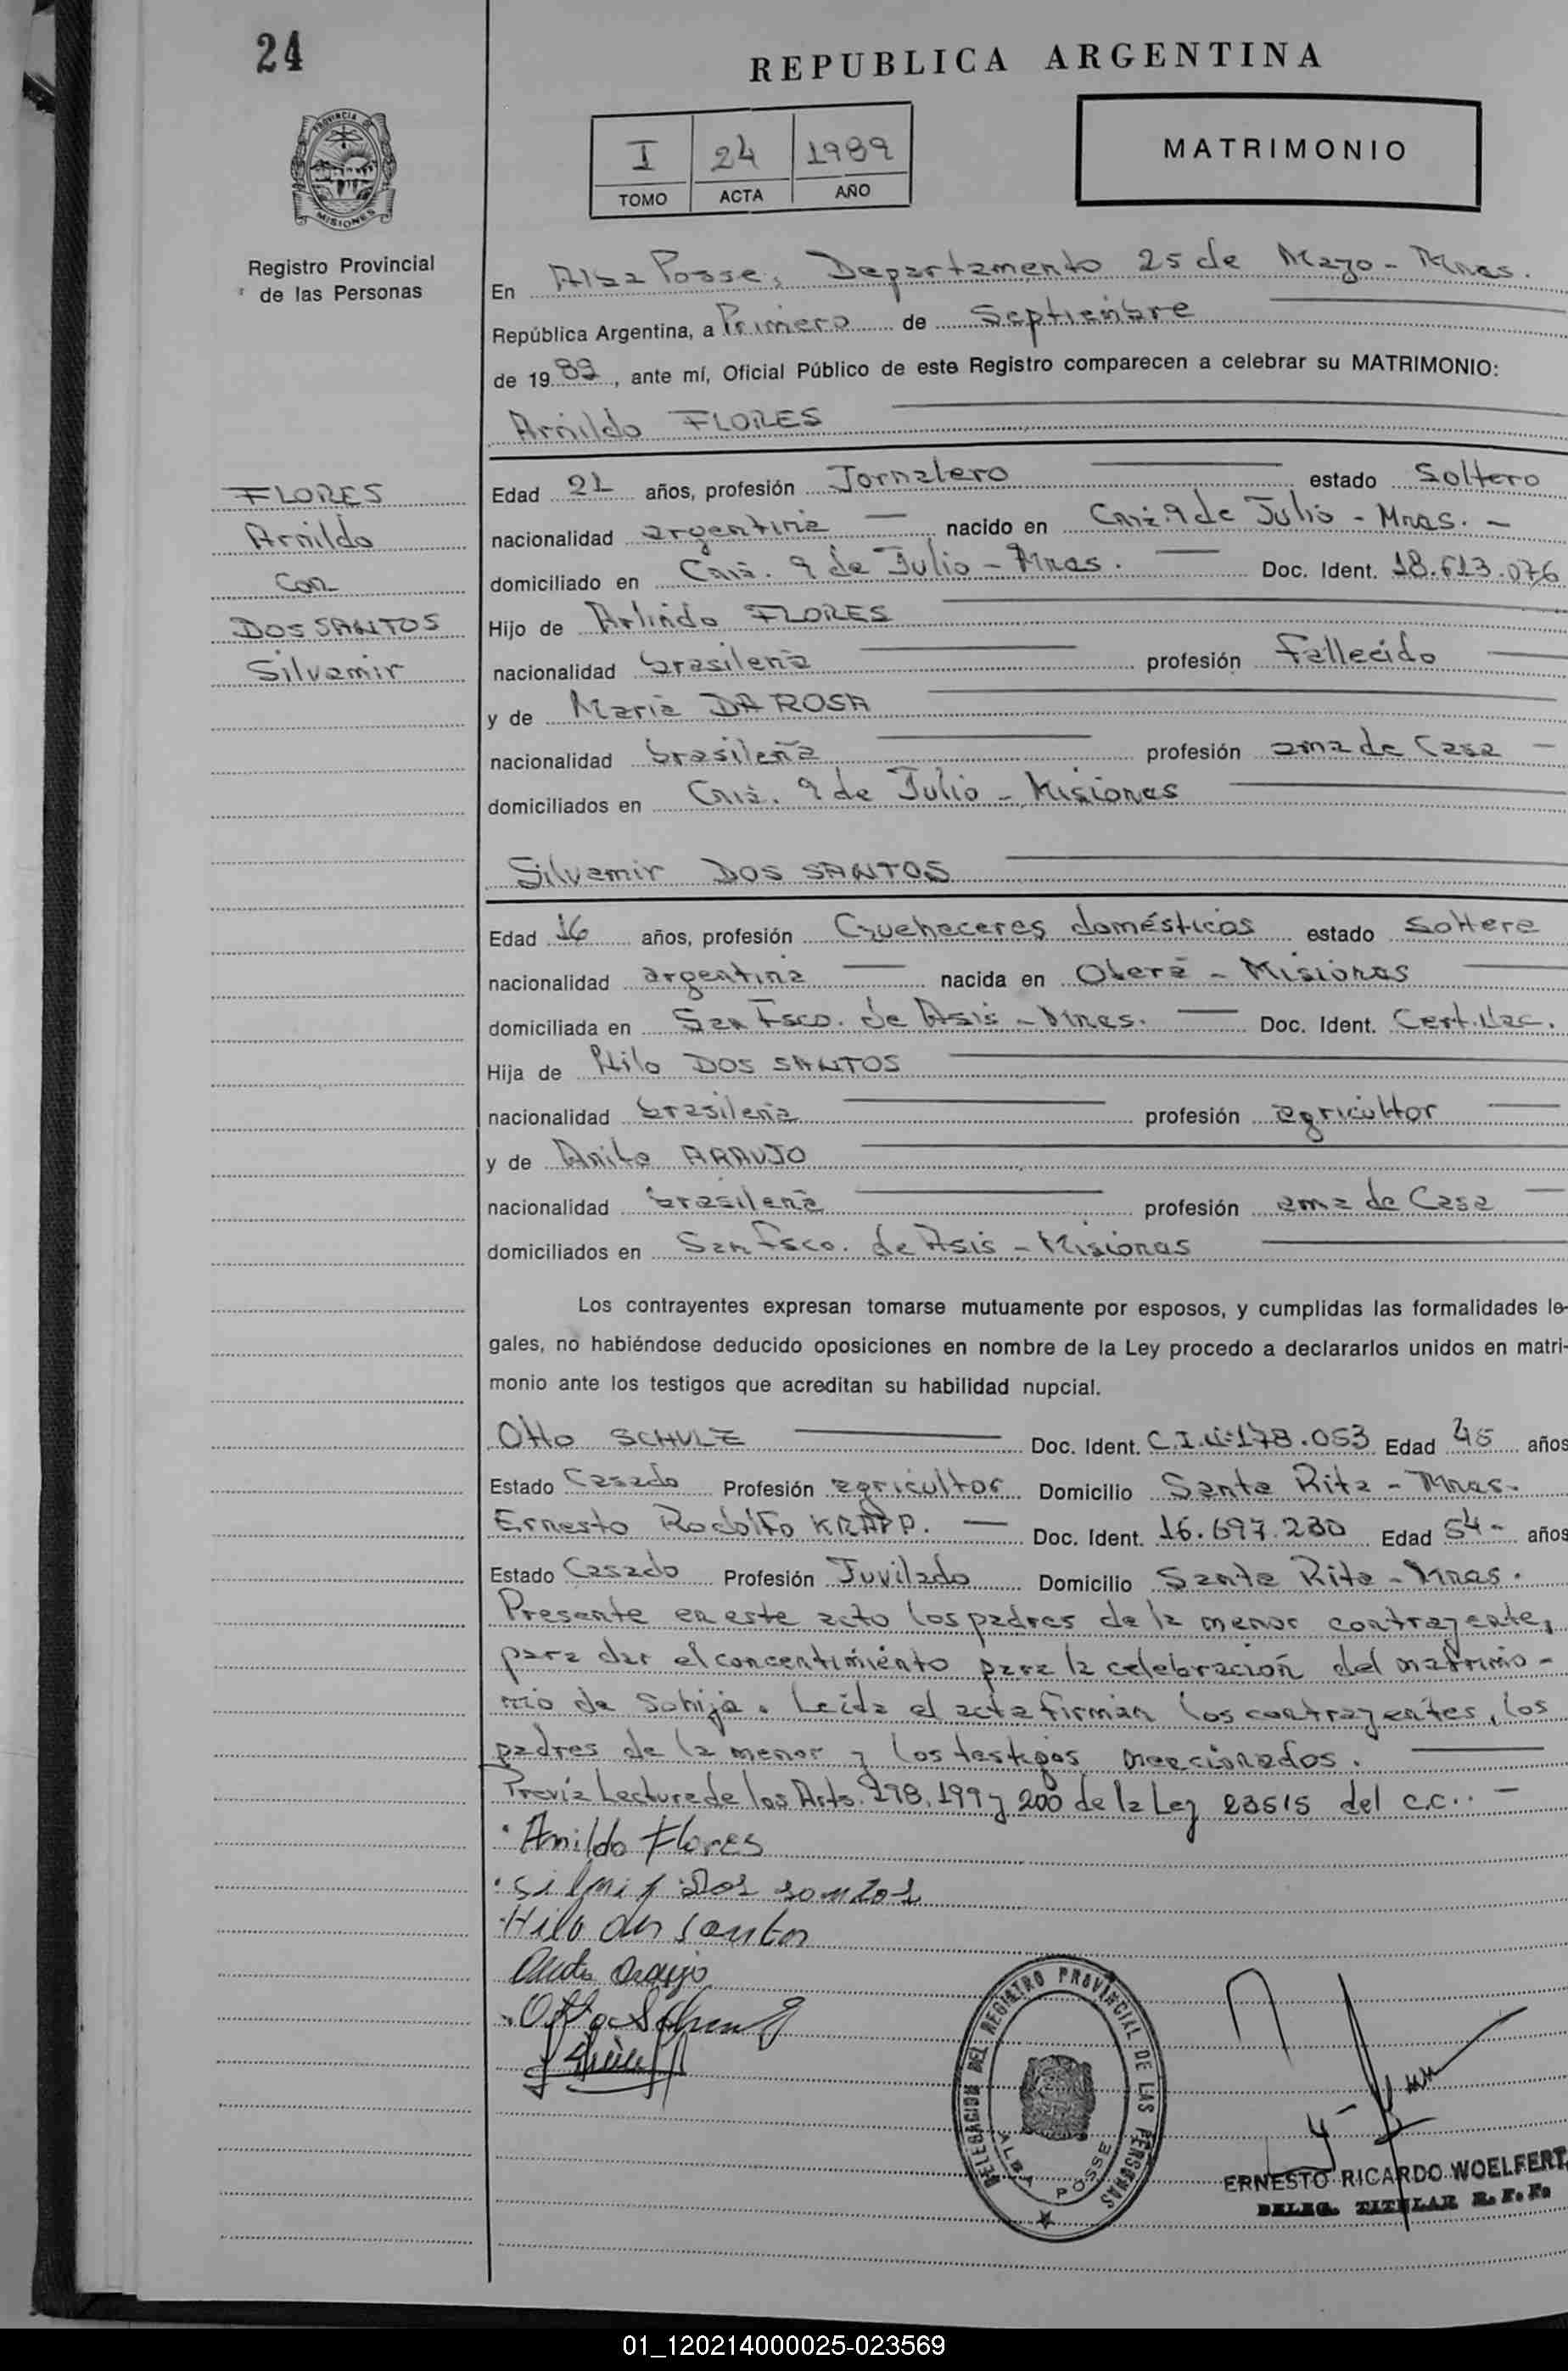 24
REPUBLICA ARGENTINA
I 24 1989
TOMO ACTA AÑO
MATRIMONIO
PROVINCIA DE
MISIONES
Registro Provincial
de las Personas
En Alba Posse, Departamento 25 de Mayo - Mnes.
República Argentina, a Primero de Septiembre
de 1989, ante mí, Oficial Público de este Registro comparecen a celebrar su MATRIMONIO:
Arnildo FLORES
FLORES
Arnildo
con
DOS SANTOS
Silvamir
Edad 21 años, profesión Jornalero estado Soltero
nacionalidad argentina nacido en Cnia. 9 de Julio - Mnes. -
domiciliado en Cnia. 9 de Julio - Mnes. Doc. Ident. 18.613.076
Hijo de Arlindo FLORES
nacionalidad brasileña profesión fallecido
y de Maria DA ROSA
nacionalidad brasileña profesión ama de Casa -
domiciliados en Cnia. 9 de Julio - Misiones
Silvamir DOS SANTOS
Edad 16 años, profesión Quehaceres domésticos estado Soltera
nacionalidad argentina nacida en Oberá - Misiones
domiciliada en San Fsco. de Asis - Mnes. Doc. Ident. Cert. Nac.
Hija de Hilo DOS SANTOS
nacionalidad brasileña profesión agricultor
y de Anita ARAUJO
nacionalidad brasileña profesión ama de Casa
domiciliados en San Fsco. de Asis - Misiones
Los contrayentes expresan tomarse mutuamente por esposos, y cumplidas las formalidades le-
gales, no habiéndose deducido oposiciones en nombre de la Ley procedo a declararlos unidos en matri-
monio ante los testigos que acreditan su habilidad nupcial.
Otto SCHULZ Doc. Ident. C.I.Nº 178.053 Edad 45 años
Estado Casado Profesión agricultor Domicilio Santa Rita - Mnes.
Ernesto Rodolfo KRAPP. Doc. Ident. 16.697.230 Edad 54- años
Estado Casado Profesión Juvilado Domicilio Santa Rita - Mnes.
Presente en este acto los padres de la menor contrayente,
para dar el concentimiento para la celebración del matrimo-
nio de su hija. Leida el acta firman los contrayentes, los
padres de la menor y los testigos mencionados.
Previa Lectura de los Arts. 198, 199 y 200 de la Ley 23515 del C.C.. -
Arnildo Flores
Hilo dos Santos
Anita Araujo
DELEGACION DEL REGISTRO PROVINCIAL DE LAS PERSONAS
ALBA POSSE
ERNESTO RICARDO WOELFERT
DELEG. TITULAR R. P. P.
01_120214000025-023569